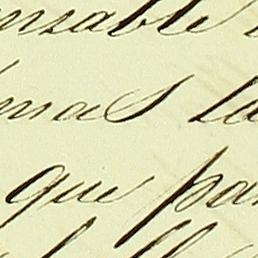 nsable
mas la
que par